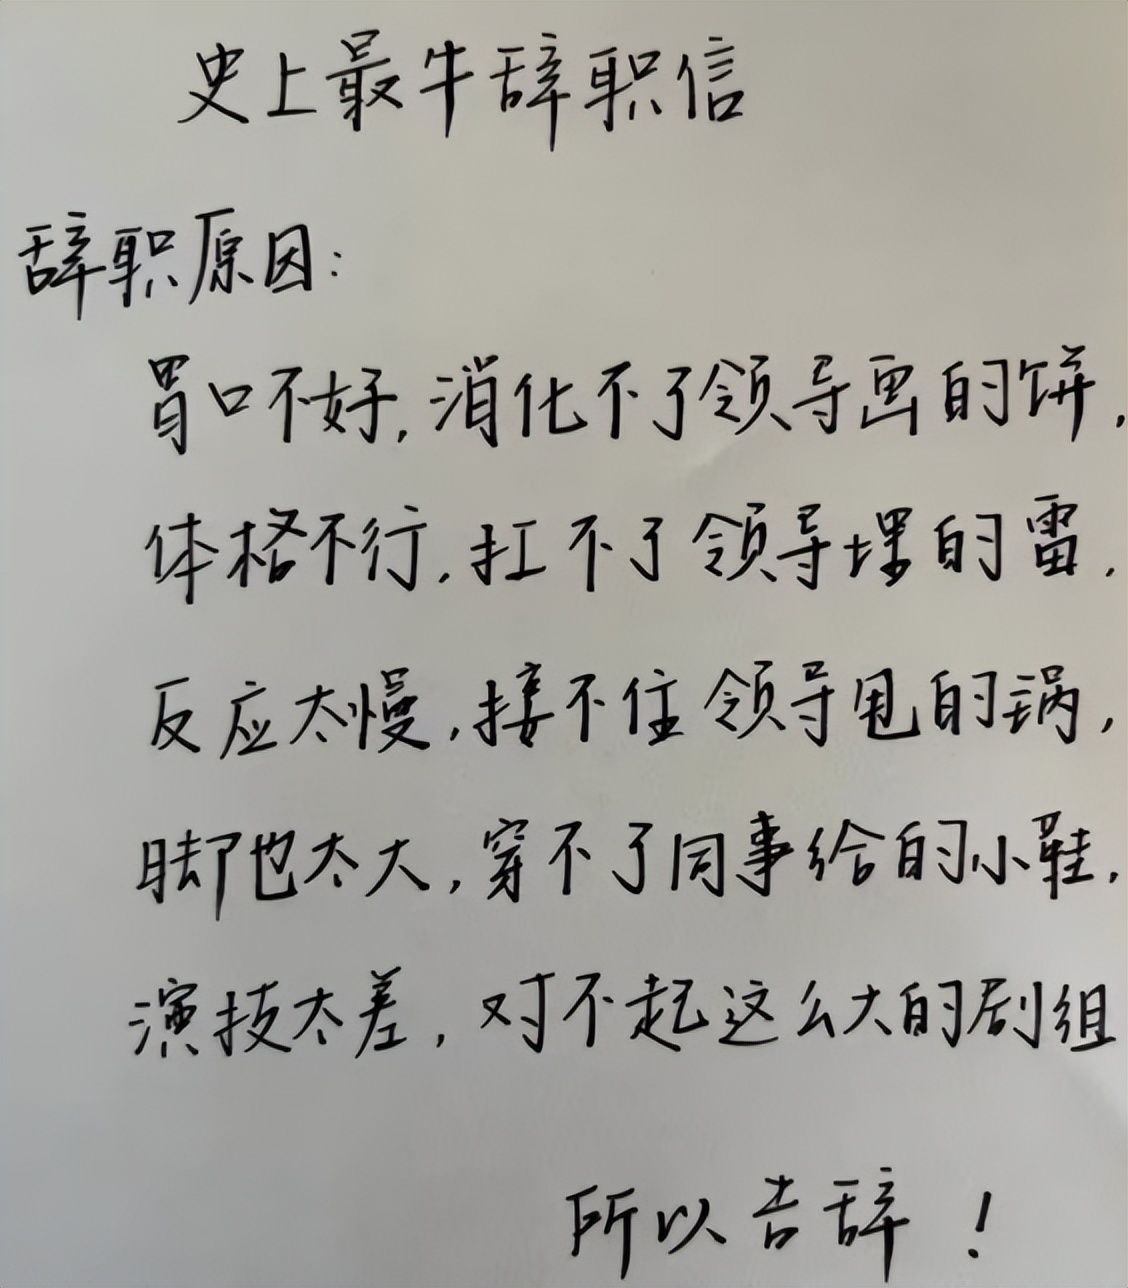 史上最牛辞职信
辞职原因:
胃口不好,消化不了领导画的饼,
体格不行,扛不了领导埋的雷,
反应太慢,接不住领导甩的锅,
脚也太大,穿不了同事给的小鞋,
演技太差,对不起这么大的剧组
所以告辞!